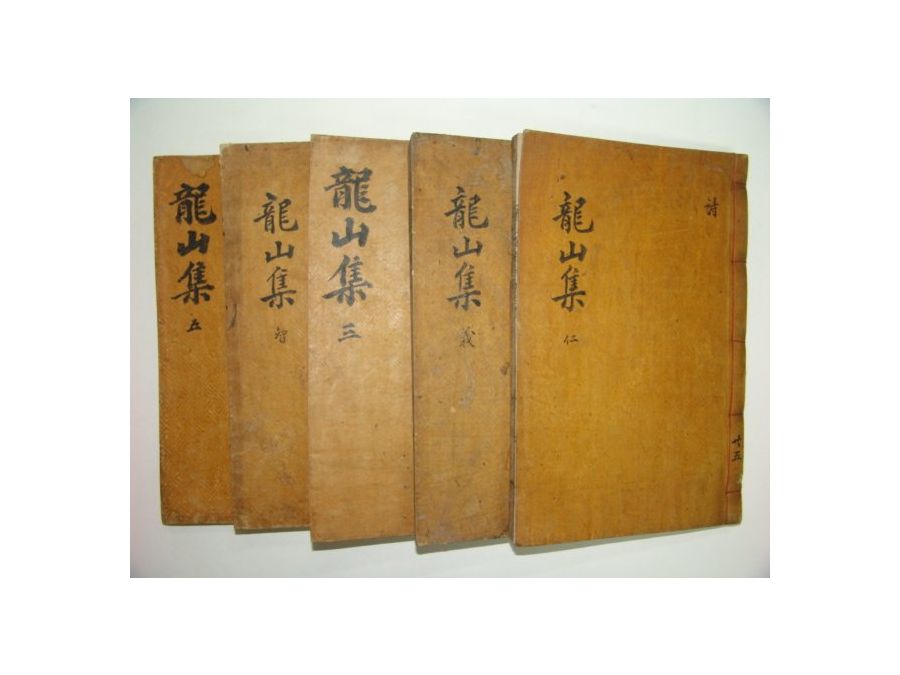 詩
龍山集 仁
共五
龍山集 義
龍山集 三
龍山集 智
龍山集 五